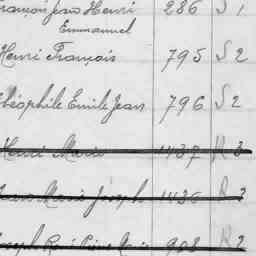 François Jean Henri 286 S 1
Emmanuel
Henri François 795 S 2
Théophile Emile Jean 796 S 2
Henri Marie 1437 R 3
Marie Joseph 1436 R 3
Joseph René 908 R 2